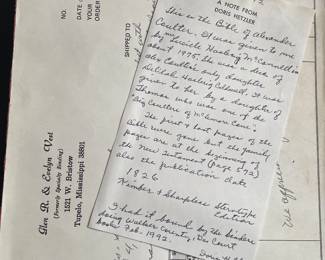 Glen R. & Evelyn Vest
(Formerly Specialty Binding)
1521 W. Bristow
Tupelo, Mississippi 38801
NO.
DATE
YOUR
ORDER
SHIPPED TO
A NOTE FROM
DORIS HETZLER
This is the Bible of Alexander
Coulter. It was given to me
by Lucille McConnell in
about 1975. She was a desc. of
Alex Coulter's only daughter
Delilah Caldwell. It was
given to her by a daughter of
Thomas who was one of the
Coulters of McLemore Cove.
The first & last pages of the
Bible were gone but the family
pages are at the beginning of
the New Testament (page 672)
also the publication date
1826
Kimber & Sharpless Stereotype
Edition
I had it bound by the binders
doing Walker County, Ga Court
books Feb. 1992.